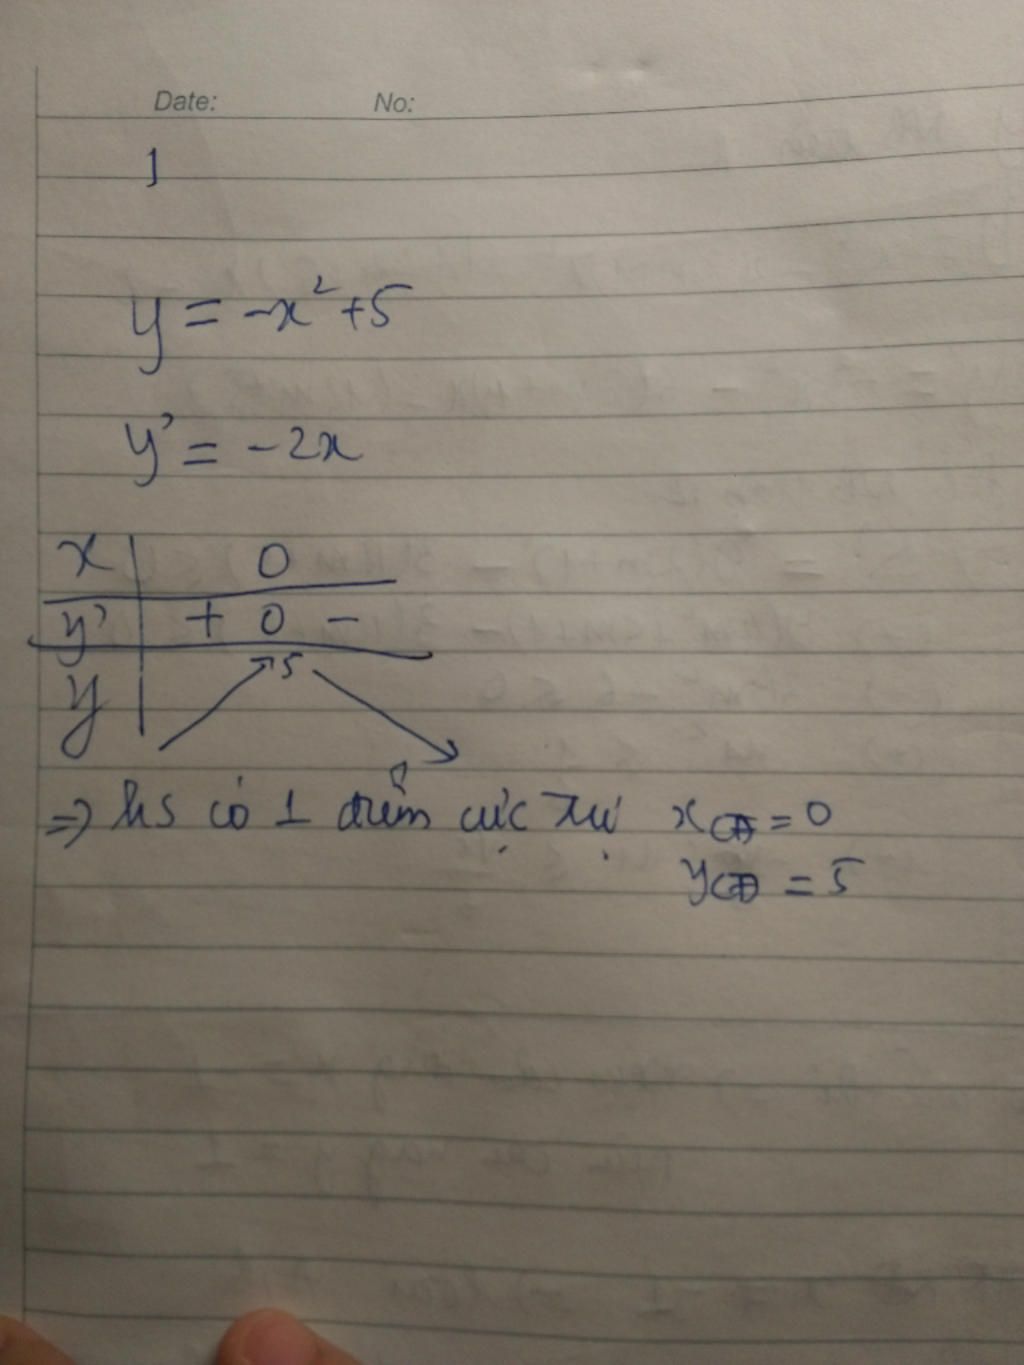 Date: No:
1
y = -x² + 5
y' = -2x
x 0
y' + 0 -
y 5
=> hs có 1 điểm cực trị x_CĐ = 0
y_CĐ = 5